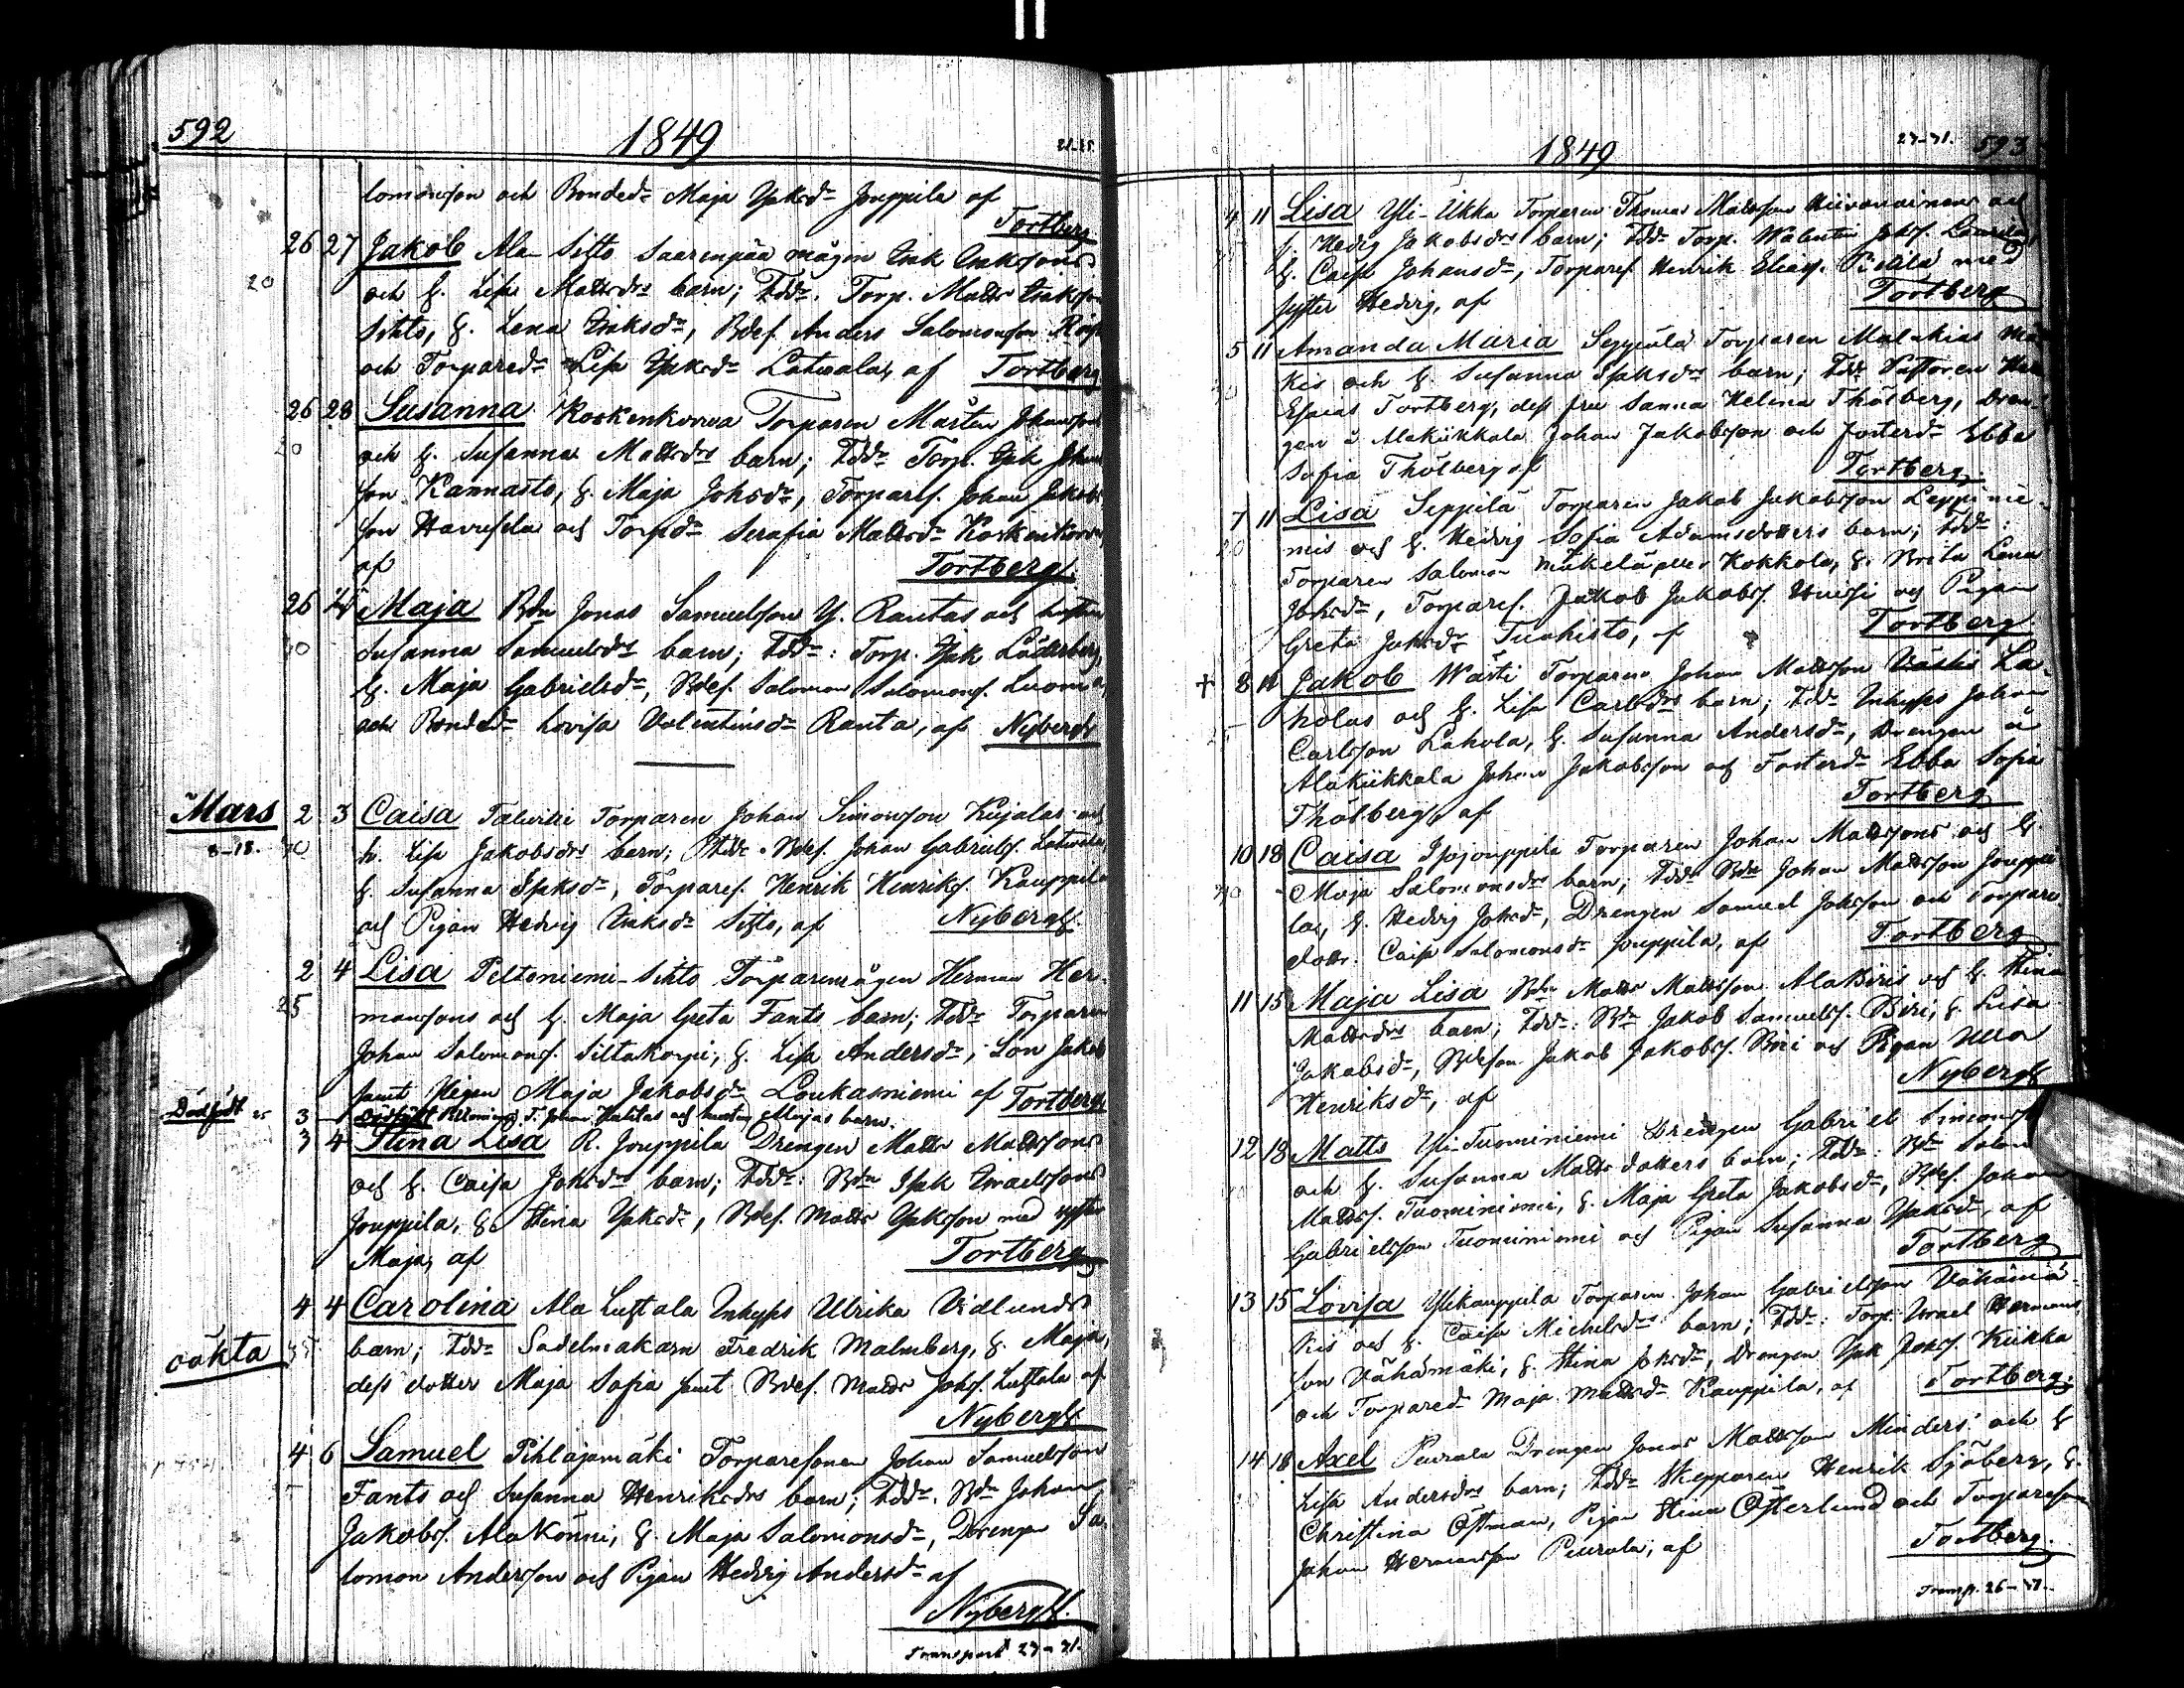 592
1849
21-25.
lomonsson och Bondedr Maja Isksdr Jouppila af
Tortberg
26 27 Jakob Ala-Sihto Saarenpää mågen Erik Erikssons
20 och h. Lisa Mattsdrs barn; Fddr. Torp. Matts Eriksson
Sihto, h. Lena Eriksdr, Bdes. Anders Salomonsson
och Torparedr Lisa Isksdr Latvala, af Tortberg
26 28 Susanna Koskenkorva Torparen Mårten Johansson
och h. Susanna Mattsdrs barn; Fddr Torp. Isak Johans
son Kannasto, h. Maja Johsdr, Torpares. Johan Jakobs
son Havusela och Torpdr Serafia Mattsdr Koskenkorva,
af Tortberg.
26 Maja Bdn Jonas Samuelsson Y. Rantas och hustrun
Susanna Samuelsdrs barn; Fddr: Torp. Isak Läderberg,
h. Maja Gabrielsdr, Bdes. Salomon Salomons. Luoma,
och Bondedr Lovisa Valentinsdr Ranta, af Nybergh
Mars 2 3 Caisa Talvitie Torparen Johan Simonsson Kujalas och
8-18. h. Lisa Jakobsdrs barn; Fddr Bdes. Johan Gabriels. Latvala,
h. Susanna Isksdr, Torpares. Henrik Henriks. Kauppila
och Pigan Hedvig Eriksdr Sihto, af Nybergh.
2 4 Lisa Peltoniemi-Sihto Torparemågen Herman Her-
25 manssons och h. Maja Greta Fants barn; Fddr Torparen
Johan Salomons. Siltakorpi, h. Lisa Andersdr, Son Jakob
samt Pigan Maja Jakobsdr Loukasniemi af Tortberg
Dödfödt 25 3 - Dödfödt T. Johan och hustru Majas barn.
3 4 Stina Lisa R. Jouppila Drengen Matts Mattssons
och h. Caisa Johsdr barn; Fddr: Bdn Isak Israelssons
Jouppila, h. Stina Isksdr, Bdes. Matts Isaksson med syster
Maja, af Tortberg
4 4 Carolina Ala Luhtala Inhyses Ulrika Vidlunds
oäkta barn; Fddr Sadelmakarn Fredrik Malmberg, h. Maja,
dess dotter Maja Sofia samt Bdes. Matts Johs. Luhtala af
Nybergh.
4 6 Samuel Pihlajamäki Torparesonen Johan Samuelsson
Fants och Susanna Henriksdrs barn; Fddr. Bdn Johan
Jakobs. Alakönni, h. Maja Salomonsdr, Drengen Sa-
lomon Andersson och Pigan Hedvig Andersdr af
Nybergh.
Transport 27-31.
1849
27-31. 593
4 11 Lisa Yli-Ukko Torparen Thomas Mattsson och
h. Hedvig Jakobsdrs barn; Fddr Torp. Walentin Johs. Laurila,
h. Caisa Johansdr, Torpares. Henrik Elias. med
syster Hedvig, af Tortberg
5 11 Amanda Maria Seppälä Torparen Malakias
kis och h. Susanna Isksdrs barn; Fddr Pastoren Herr
Esaias Tortberg, dess fru Sanna Helena Thölberg, Dren-
gen å Alakiikkala Johan Jakobsson och Fosterdr Ebba
Sofia Thölberg af Tortberg.
7 11 Lisa Seppilä Torparen Jakob Jakobsson Leppinie-
20 mis och h. Hedvig Sofia Adamsdotters barn; Fddr:
Torparen Salomon Mäkelä eller Kokkola, h. Brita Lena
Johsdr, Torpares. Jakob Jakobs. och Pigan
Greta Johsdr Tuohisto, af Tortberg
† 8 11 Jakob Wästi Torparen Johan Mattsson Västis La-
holas och h. Lisa Carlsdrs barn; Fddr Inhyses Johan
Carlsson Lahola, h. Susanna Andersdr, Drengen å
Alakiikkala Johan Jakobsson och Fosterdr Ebba Sofia
Thölberg, af Tortberg
10 18 Caisa Isojouppila Torparen Johan Mattssons och h.
Maja Salomonsdrs barn; Fddr Bdn Johan Mattsson Jouppi-
las, h. Hedvig Johsdr, Drengen Samuel Johsson och Torpare-
dottr. Caisa Salomonsdr Jouppila, af Tortberg
11 15 Maja Lisa Bdn Matts Mattsson AlaBiris och h. Stina
Mattsdrs barn; Fddr: Bdn Jakob Samuels. Biri, h. Lisa
Jakobsdr, Bdeson Jakob Jakobs. Biri och Pigan Ulla
Henriksdr, af Nybergh
12 18 Matts Yli-Tuominiemi Drengen Gabriel Simonss
och h. Susanna Mattsdotters barn; Fddr: Bdn Salom
Matts. Tuominiemi, h. Maja Greta Jakobsdr, Bdes. Johan
Gabrielsson Tuominiemi och Pigan Susanna Isaksdr, af
Tortberg
13 15 Lovisa Ylikauppila Torparen Johan Gabrielsson Vähämä-
kis och h. Caisa Michelsdrs barn; Fddr: Torp. Israel Hermans
son Vähämäki, h. Stina Johsdr, Drengen Isak Johs. Kiikka
och Torparedr Maja Mattsdr Kauppila, af Tortberg.
14 18 Axel Peurala Drengen Jonas Mattsson Minders och h.
Lisa Andersdrs barn; Fddr Skepparen Henrik Sjöberg, h.
Christina Östman, Pigan Stina Österlund och Torpareson
Johan Hermansson Peurala, af Tortberg.
Transp. 26-37.